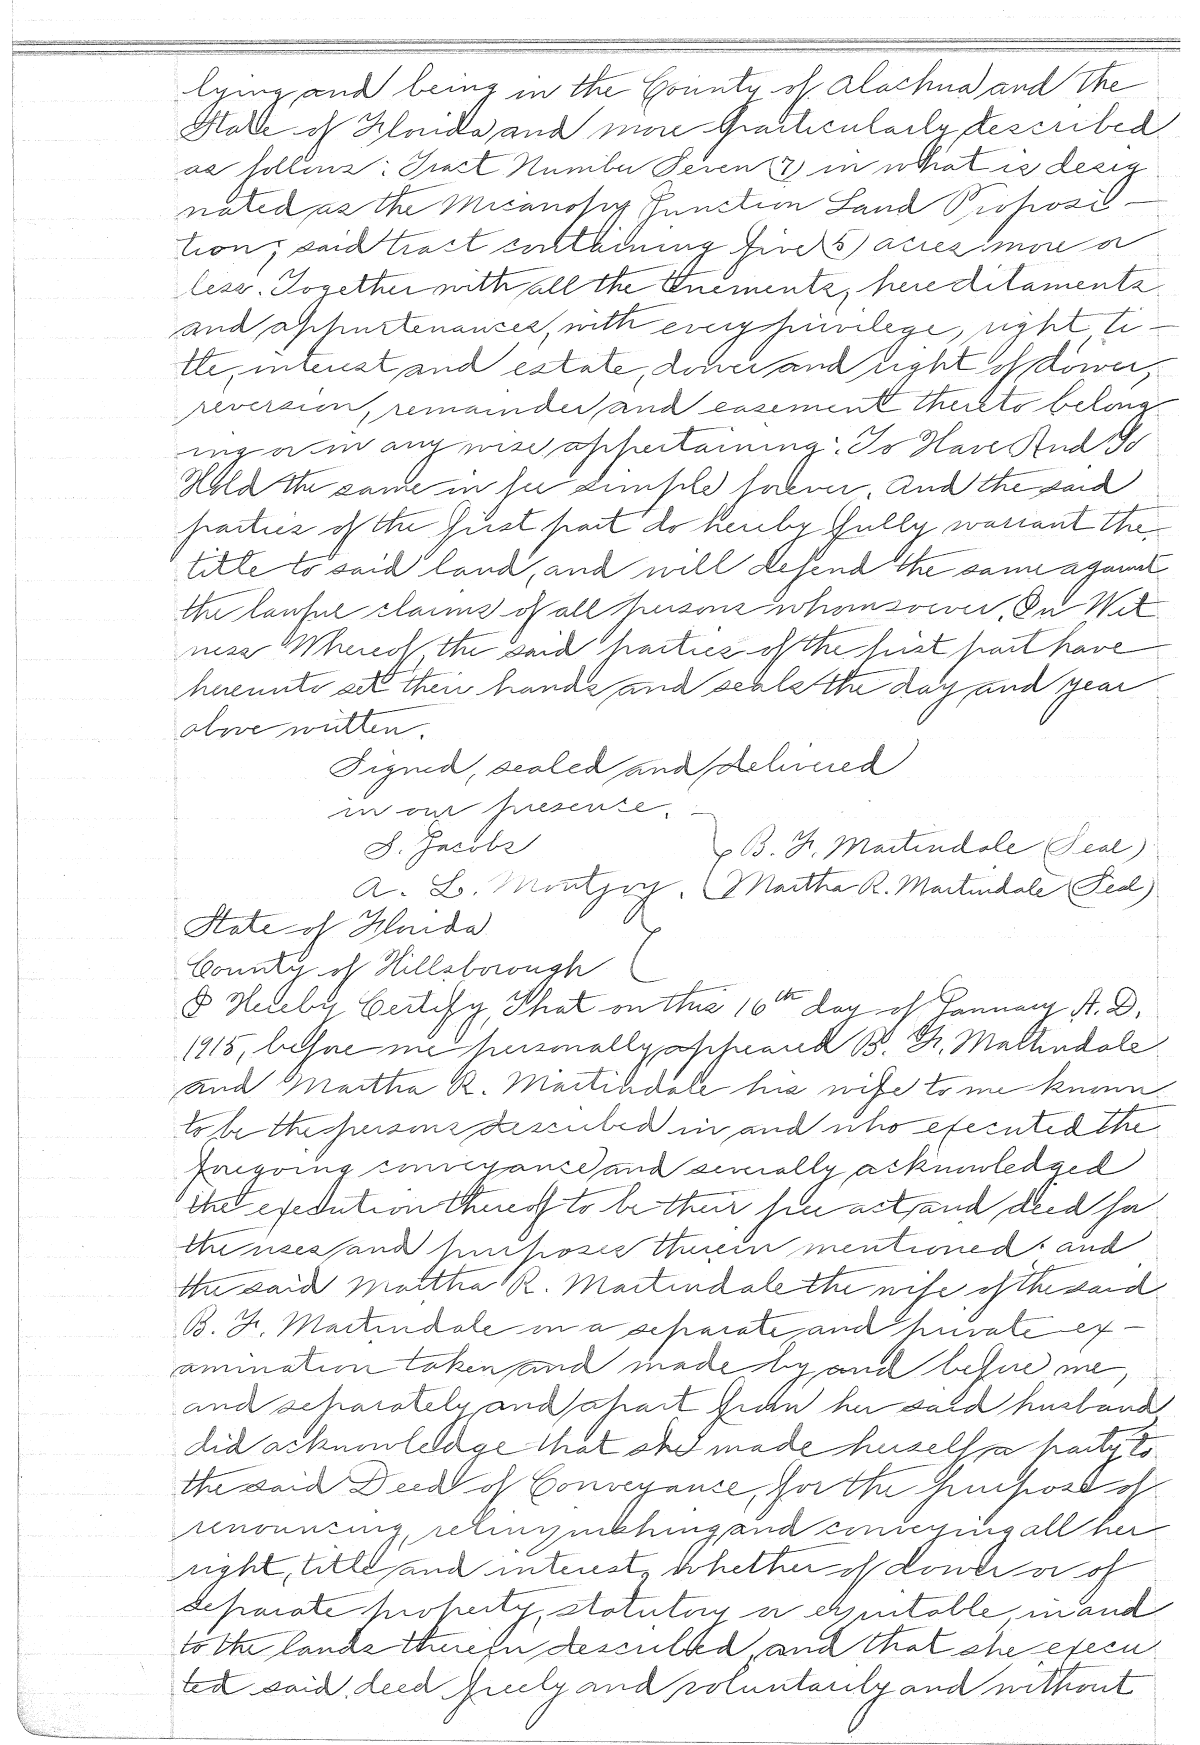 lying and being in the County of Alachua and the
State of Florida and more particularly described
as follows: Tract Number Seven (7) in what is desig
nated as the Micanopy Junction Land Proposi-
tion; said tract containing five (5) acres more or
less. Together with all the tenements, hereditaments
and appurtenances, with every privilege, right, ti-
tle, interest and estate, dower and right of dower,
reversion, remainder and easement thereto belong
ing or in any wise appertaining: To Have And To
Hold the same in fee simple forever. And the said
parties of the first part do hereby fully warrant the
title to said land, and will defend the same against
the lawful claims of all persons whomsoever. In Wit
ness Whereof, the said parties of the first part have
hereunto set their hands and seals the day and year
above written.
Signed, sealed and delivered
in our presence.
S. Jacobs } B. F. Martindale (Seal)
A. L. Montjoy. Martha R. Martindale (Seal)
State of Florida
County of Hillsborough
I Hereby Certify, That on this 16th day of January A.D.
1915, before me personally appeared B. F. Martindale
and Martha R. Martindale his wife to me known
to be the persons described in and who executed the
foregoing conveyance and severally acknowledged
the execution thereof to be their free act and deed for
the uses and purposes therein mentioned: and
the said Martha R. Martindale the wife of the said
B. F. Martindale on a separate and private ex-
amination taken and made by and before me,
and separately and apart from her said husband,
did acknowledge that she made herself a party to
the said Deed of Conveyance, for the purpose of
renouncing, relinquishing and conveying all her
right, title and interest, whether of dower or of
separate property, statutory or equitable, in and
to the lands therein described, and that she execu
ted said deed freely and voluntarily and without